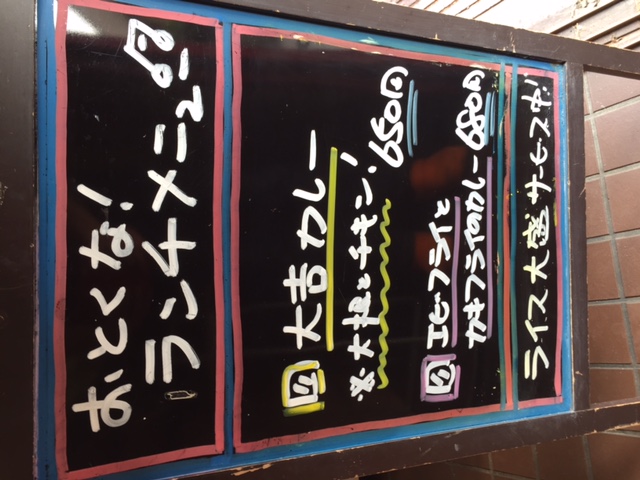 おとくな!
ランチメニュー♫
大吉カレー
※大根とチキン! 650円
エビフライと
カキフライのカレー 680円
ライス大盛サービス中!